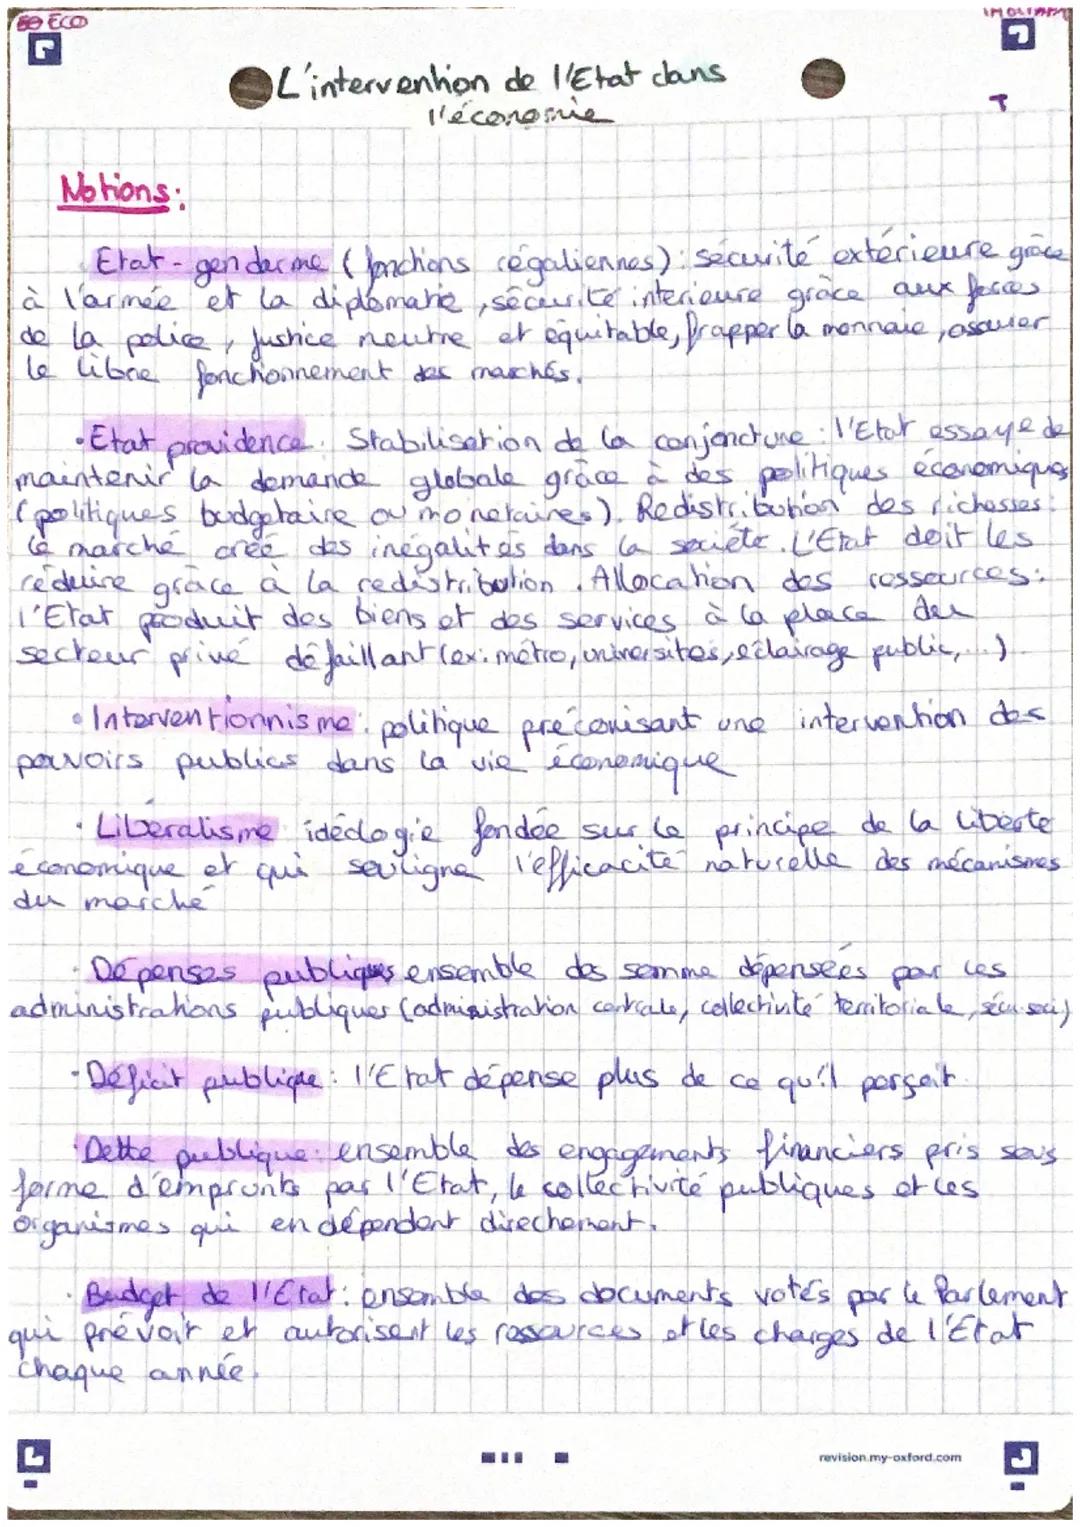 ECO
L'intervention de l'Etat dans
l'économie
T
Notions:
Etat-gendarme (fonctions régaliennes): sécurité extérieure grâce
à l'armée et la diplomatie, sécurité interieure grâce aux forces
de la police, justice neutre et équitable, frapper la monnaie, assurer
le libre fonctionnement des marchés.
• Etat providence: Stabilisation de la conjoncture: l'Etat essaye de
maintenir la demande globale grâce à des politiques économiques
(politiques budgetaire ou monetaires). Redistribution des richesses:
le marché créé des inégalités dans la société. L'Etat doit les
réduire grâce à la redistribution. Allocation des ressources:
l'Etat produit des biens et des services à la place du
secteur privé défaillant (ex: métro, universités, éclairage public,...)
• Interventionnisme: politique préconisant une intervention des
pouvoirs publics dans la vie économique
• Libéralisme idéologie fondée sur le principe de la liberté
économique et qui souligne l'efficacité naturelle des mécanismes
du marché
• Dépenses publiques ensemble des somme dépensées par les
administrations publiques (administration centrale, collectivité territoriale, sécu. soci)
• Déficit publique: l'Etat dépense plus de ce qu'il perçoit.
• Dette publique: ensemble des engagements financiers pris sous
forme d'emprunts par l'Etat, le collectivité publiques et les
organismes qui en dépendent directement.
• Budget de l'Etat: ensemble des documents votés par le Parlement
qui prévoit et autorisent les ressources et les charges de l'Etat
chaque année.
revision.my-oxford.com